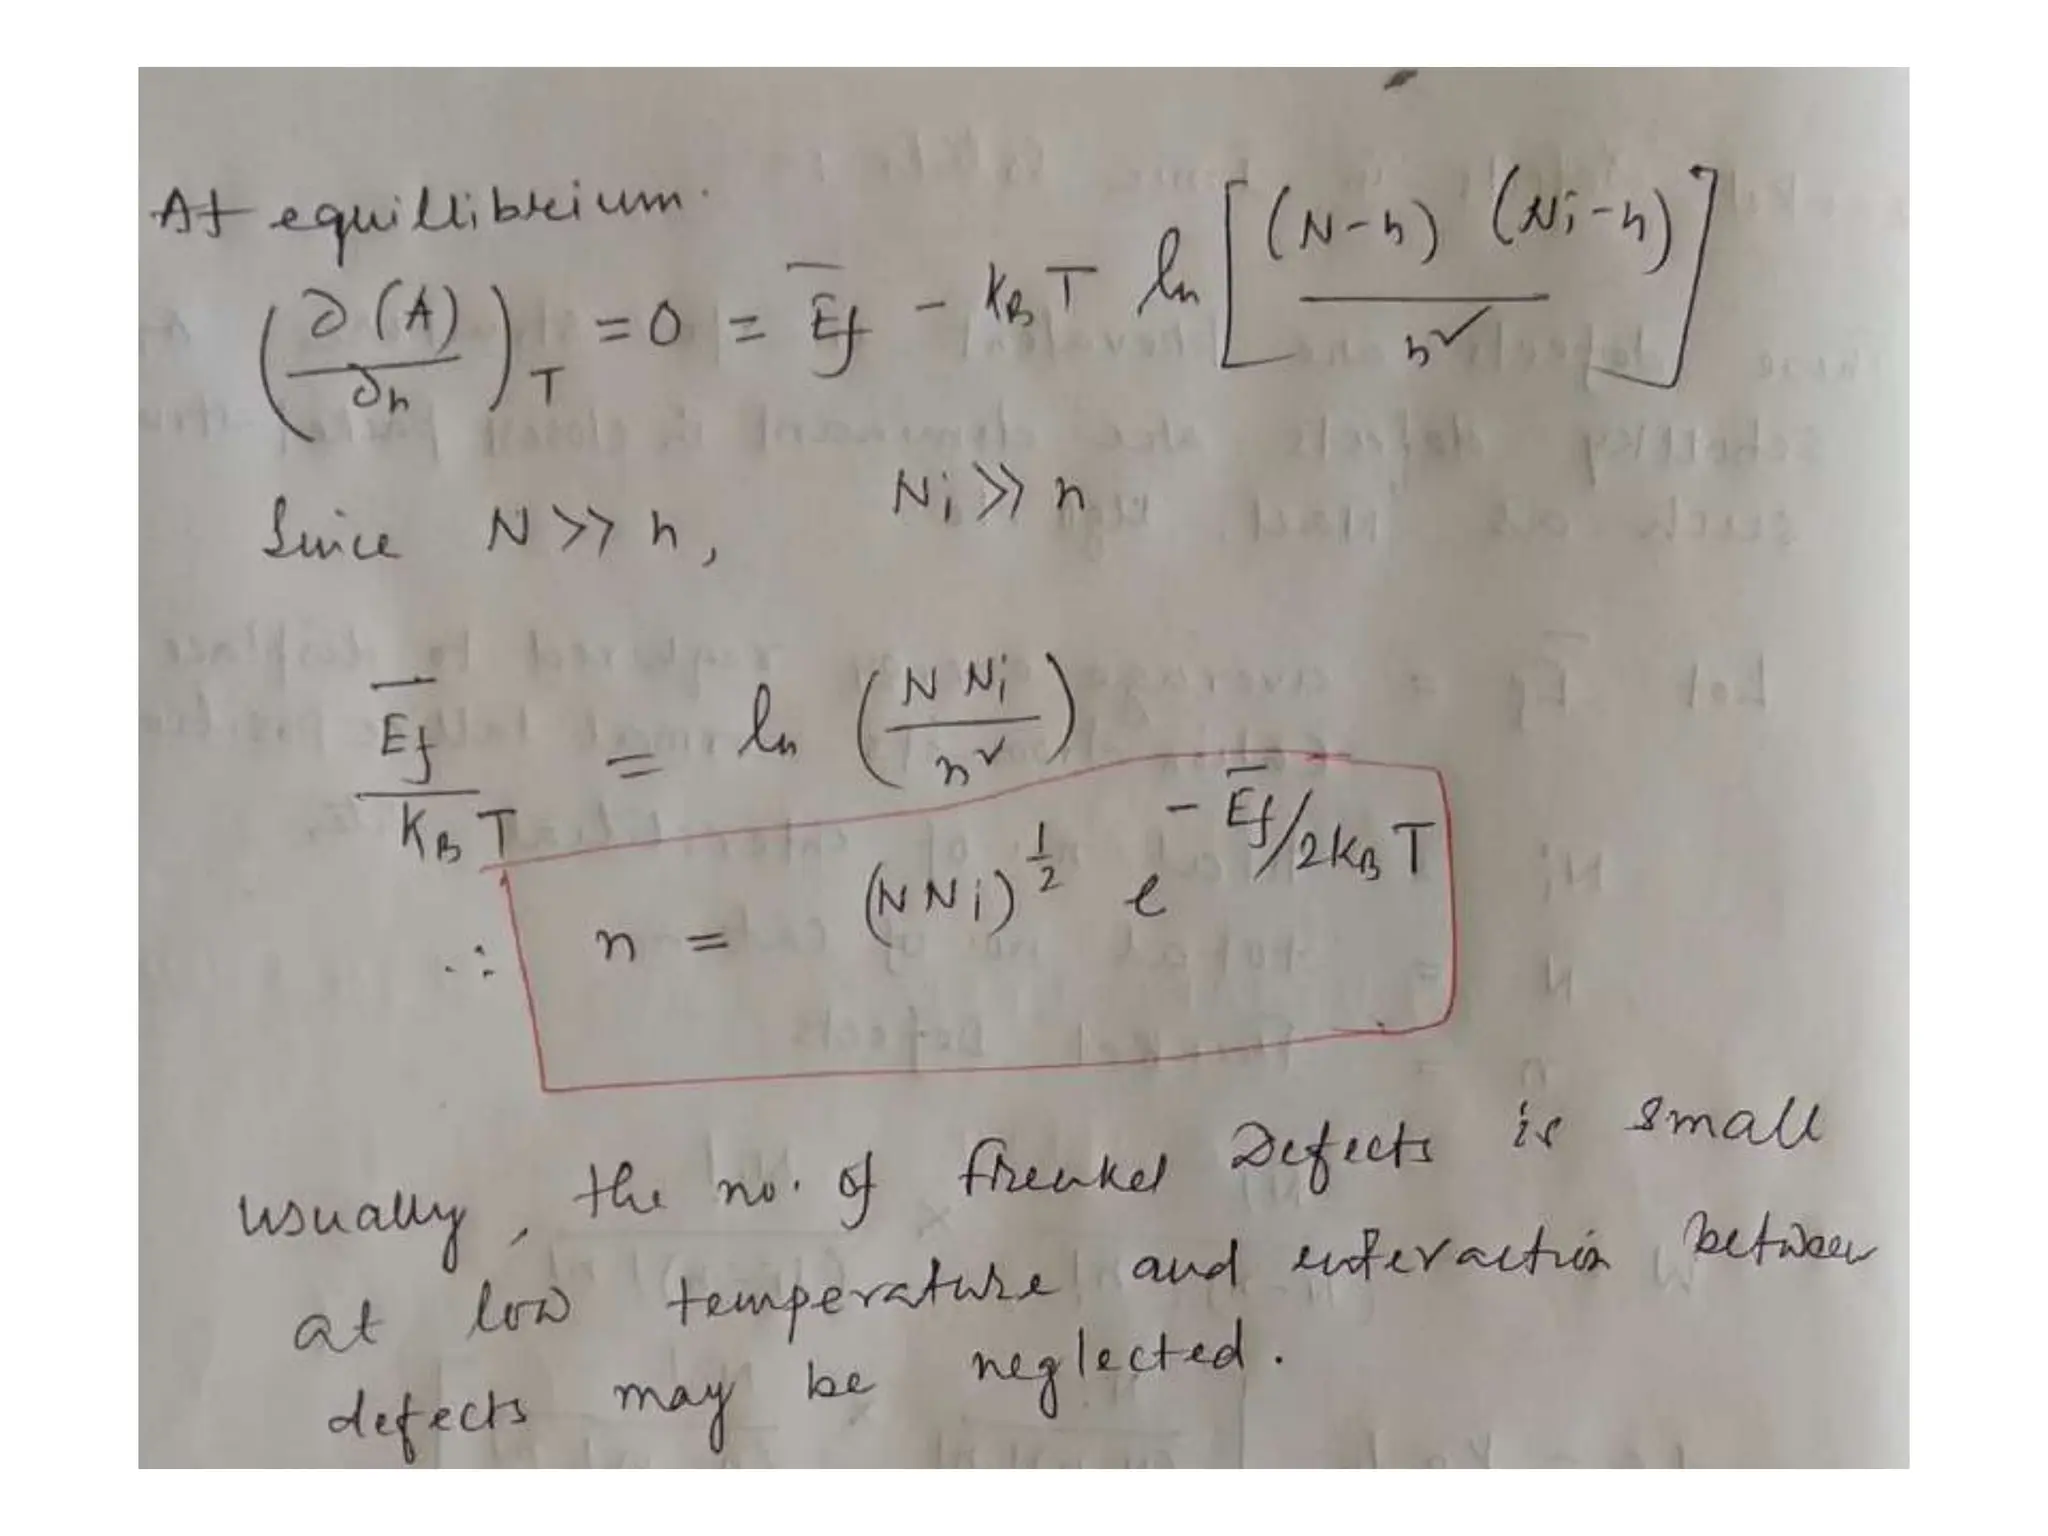 At equillibrium.
(∂(A)/∂n)_T = 0 = E̅f - K_B T ln [(N-n) (Ni-n) / n²]
Since N >> n, Ni >> n
E̅f / K_B T = ln (N Ni / n²)
∴ n = (N Ni)^½ e^(-E̅f/2K_B T)
usually, the no. of Frenkel Defects is small
at low temperature and interaction between
defects may be neglected.